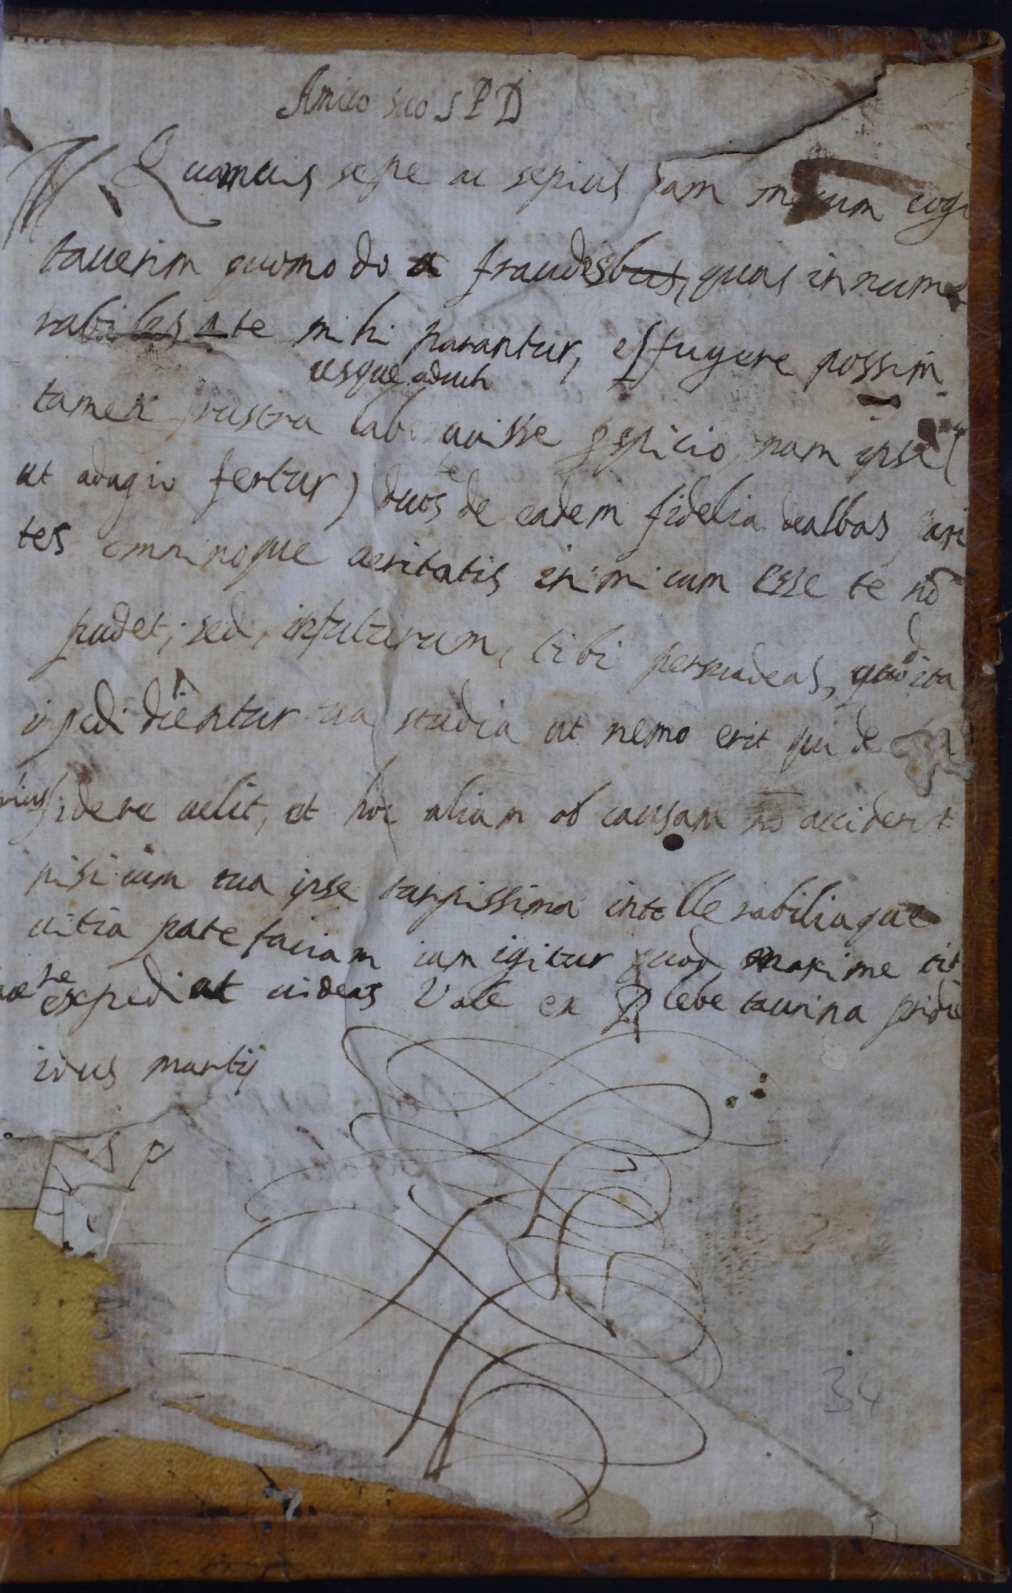 Amico suo S P D
Quamuis sepe ac sepius iam mecum cogi
tauerim quomodo a fraudesbus, quas innume
rabiles a te mihi parantur, effugere possim
usque aduch
tamen frustra laborauisse pspicio, nam ipse (
ut adagio fertur) duos de eadem fidelia dealbas pari
te
tes omninoque ueritatis inimicum esse te nõ
pudet; sed, infuturum, tibi persuadeas, quod ita
inpedidientur tua studia ut nemo erit qui de
fidere uelit, et hoc aliam ob causam nõ acciderit
nisi cum tua ipse turpissima intollerabiliaque
uitia patefaciam iam igitur quod maxime
te expediat uideas Vale ex Plebe taurina pridie
idus martij
S P
34